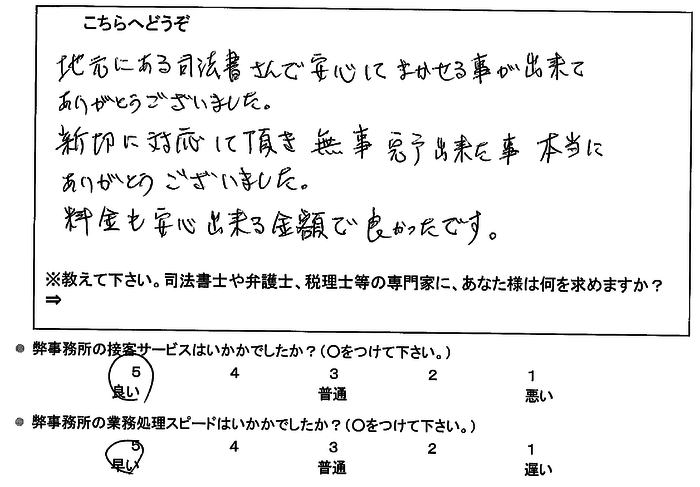 こちらへどうぞ
地元にある司法書さんで安心してまかせる事が出来て
ありがとうございました。
新切に対応して頂き 無事 完了出来た事 本当に
ありがとう ございました。
料金も安心出来る金額で良かったです。
※教えて下さい。司法書士や弁護士、税理士等の専門家に、あなた様は何を求めますか？
⇒
● 弊事務所の接客サービスはいかかでしたか？（〇をつけて下さい。）
5 4 3 2 1
良い 普通 悪い
● 弊事務所の業務処理スピードはいかかでしたか？（〇をつけて下さい。）
5 4 3 2 1
早い 普通 遅い